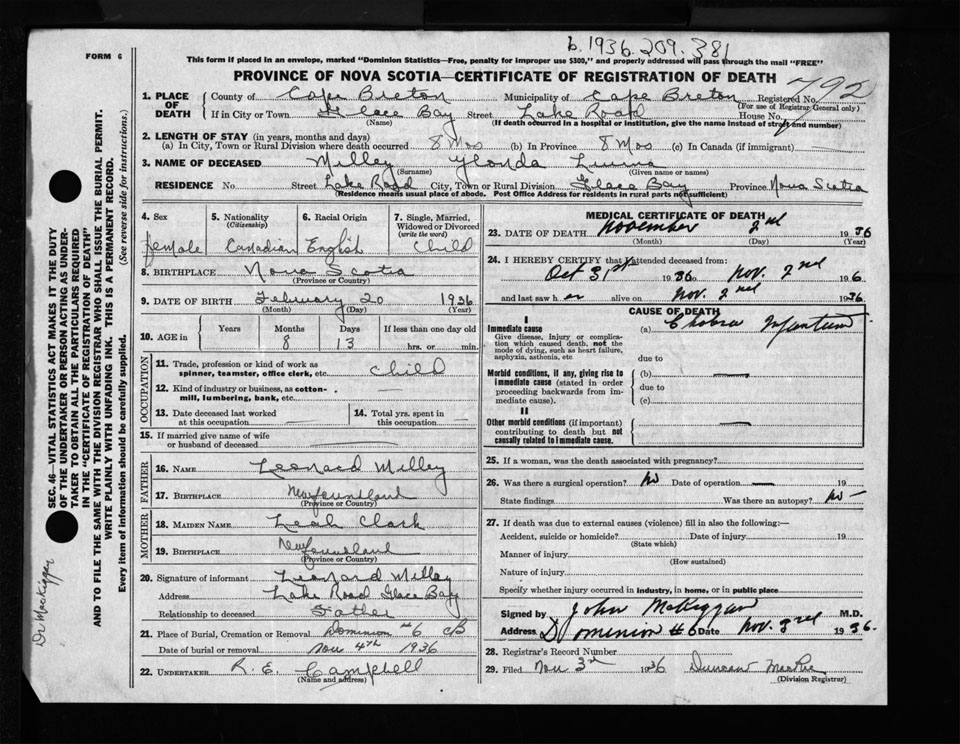 b. 1936. 209. 381
FORM 6
This form if placed in an envelope, marked "Dominion Statistics—Free, penalty for improper use $300," and properly addressed will pass through the mail "FREE"
PROVINCE OF NOVA SCOTIA—CERTIFICATE OF REGISTRATION OF DEATH
792
1. PLACE OF DEATH
County of Cape Breton Municipality of Cape Breton Registered No.
(For use of Registrar General only)
If in City or Town Glace Bay Street Lake Road House No.
(Name) (If death occurred in a hospital or institution, give the name instead of street and number)
2. LENGTH OF STAY (in years, months and days)
(a) In City, Town or Rural Division where death occurred 8 Mos (b) In Province 8 Mos (c) In Canada (if immigrant)
3. NAME OF DECEASED Milley
(Surname) (Given name or names)
RESIDENCE No. Street Lake Road City, Town or Rural Division Glace Bay Province Nova Scotia
(Residence means usual place of abode. Post Office Address for residents in rural parts not sufficient)
4. Sex
female
5. Nationality
(Citizenship)
Canadian
6. Racial Origin
English
7. Single, Married, Widowed or Divorced
(write the word)
Child
8. BIRTHPLACE Nova Scotia
(Province or Country)
9. DATE OF BIRTH February 20 1936
(Month) (Day) (Year)
10. AGE in
Years Months Days If less than one day old
8 13 hrs. or min.
OCCUPATION
11. Trade, profession or kind of work as
spinner, teamster, office clerk, etc. Child
12. Kind of industry or business, as cotton-
mill, lumbering, bank, etc.
13. Date deceased last worked
at this occupation
14. Total yrs. spent in
this occupation
15. If married give name of wife
or husband of deceased
FATHER
16. NAME Leonard Milley
17. BIRTHPLACE Newfoundland
(Province or Country)
MOTHER
18. MAIDEN NAME Leah Clark
19. BIRTHPLACE Newfoundland
(Province or Country)
20. Signature of informant Leonard Milley
Address Lake Road Glace Bay
Relationship to deceased Father
21. Place of Burial, Cremation or Removal Dominion #6 CB
Date of burial or removal Nov 4th 1936
22. UNDERTAKER R. E. Campbell
(Name and address)
MEDICAL CERTIFICATE OF DEATH
23. DATE OF DEATH November 2nd 1936
(Month) (Day) (Year)
24. I HEREBY CERTIFY that I attended deceased from:
Oct 31st 1936 to Nov. 2nd 1936
and last saw her alive on Nov. 2nd 1936.
CAUSE OF DEATH
I
Immediate cause
Give disease, injury or complica-
tion which caused death, not the
mode of dying, such as heart failure,
asphyxia, asthenia, etc
(a) Cholera Infantum
due to
Morbid conditions, if any, giving rise to
immediate cause (stated in order
proceeding backwards from im-
mediate cause).
(b)
due to
(c)
II
Other morbid conditions (if important)
contributing to death but not
causally related to immediate cause.
25. If a woman, was the death associated with pregnancy?
26. Was there a surgical operation? No Date of operation 19
State findings Was there an autopsy? No
27. If death was due to external causes (violence) fill in also the following:—
Accident, suicide or homicide? Date of injury 19
(State which)
Manner of injury
(How sustained)
Nature of injury
Specify whether injury occurred in industry, in home, or in public place
Signed by John McKiggan M.D.
Address Dominion #6 Date Nov. 3rd 1936.
28. Registrar's Record Number
29. Filed Nov 3rd 1936 Duncan
(Division Registrar)
SEC. 46—VITAL STATISTICS ACT MAKES IT THE DUTY
OF THE UNDERTAKER OR PERSON ACTING AS UNDER-
TAKER TO OBTAIN ALL THE PARTICULARS REQUIRED
IN THE "CERTIFICATE OF REGISTRATION OF DEATH"
AND TO FILE THE SAME WITH THE DIVISION REGISTRAR WHO SHALL ISSUE THE BURIAL PERMIT.
WRITE PLAINLY WITH UNFADING INK. THIS IS A PERMANENT RECORD.
Every item of information should be carefully supplied. (See reverse side for instructions.)
Dr MacKiggan